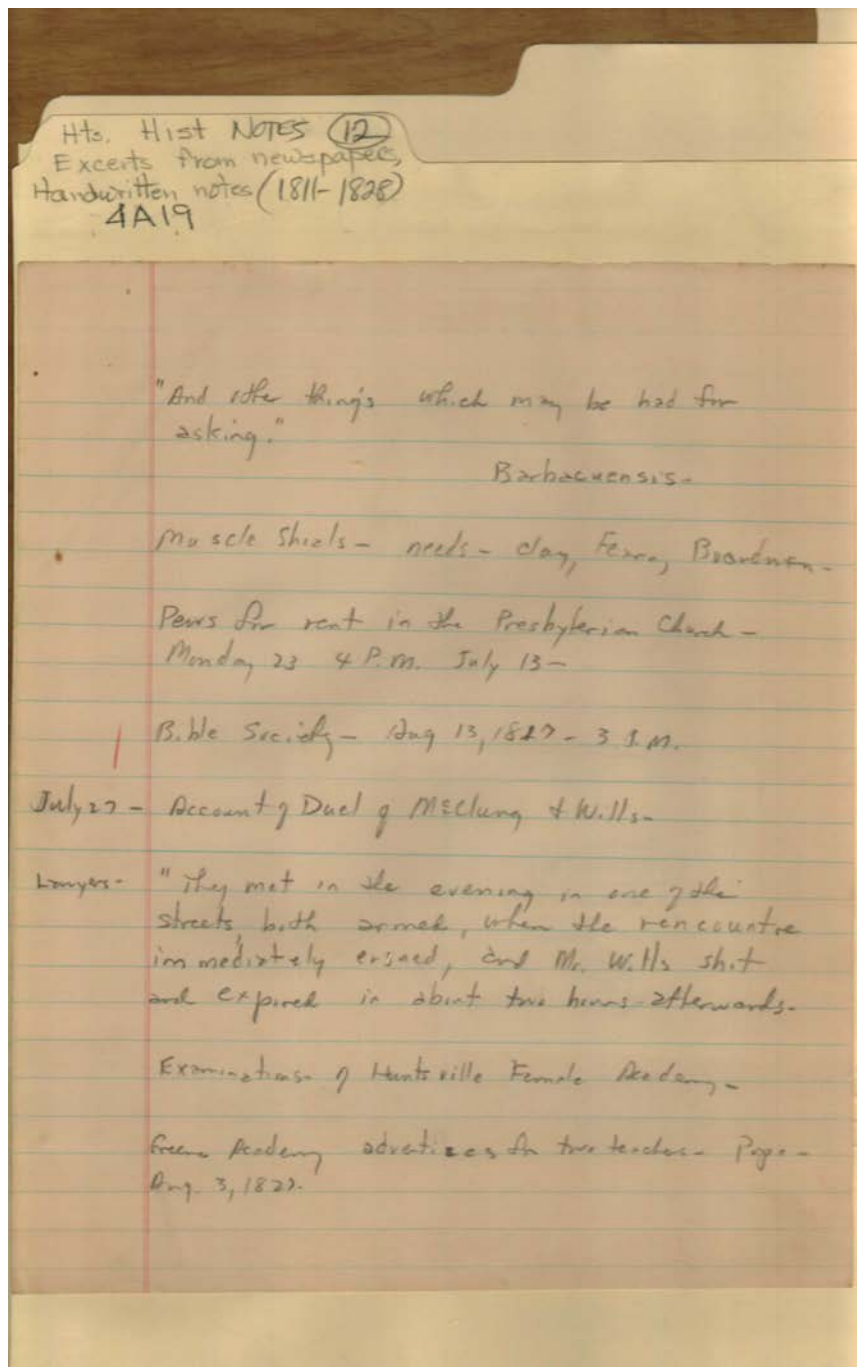 Hts. Hist NOTES (12)
Excerts from newspapers,
Handwritten notes (1811-1828)
4A19
"And other things which may be had for
asking."
Barbacuensis-
Muscle Shoals - needs - clay, Fearn, Boardman-
Pews for rent in the Presbyterian Church -
Monday 23 4 P.m. July 13-
Bible Society - Aug 13, 1827 - 3 P.M.
July 27 - Account of Duel of McClung & Wills-
Lawyers- "They met in the evening in one of the
streets, both armed, when the rencountre
immediately ensued, and Mr. Wills shot
and expired in about two hours afterwards.
Examinations of Huntsville Female Academy-
Greene Academy advertizes for two teachers - Pope -
Aug. 3, 1827.